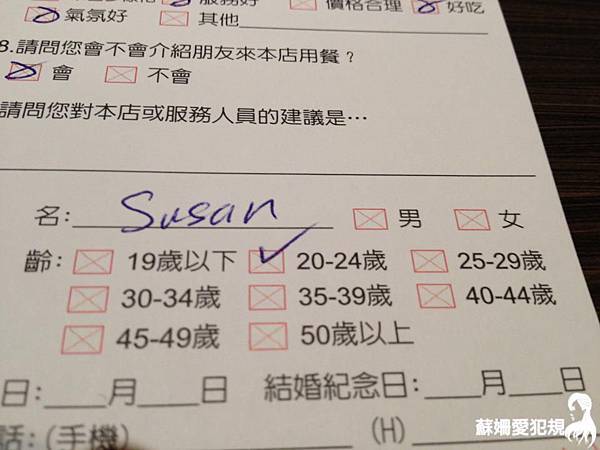 服務好 價格合理 好吃
氣氛好 其他
8.請問您會不會介紹朋友來本店用餐?
會 不會
請問您對本店或服務人員的建議是…
名: Susan 男 女
齡: 19歲以下 20-24歲 25-29歲
30-34歲 35-39歲 40-44歲
45-49歲 50歲以上
日: 月 日 結婚紀念日: 月 日
話: (手機) (H)
蘇姍愛犯規